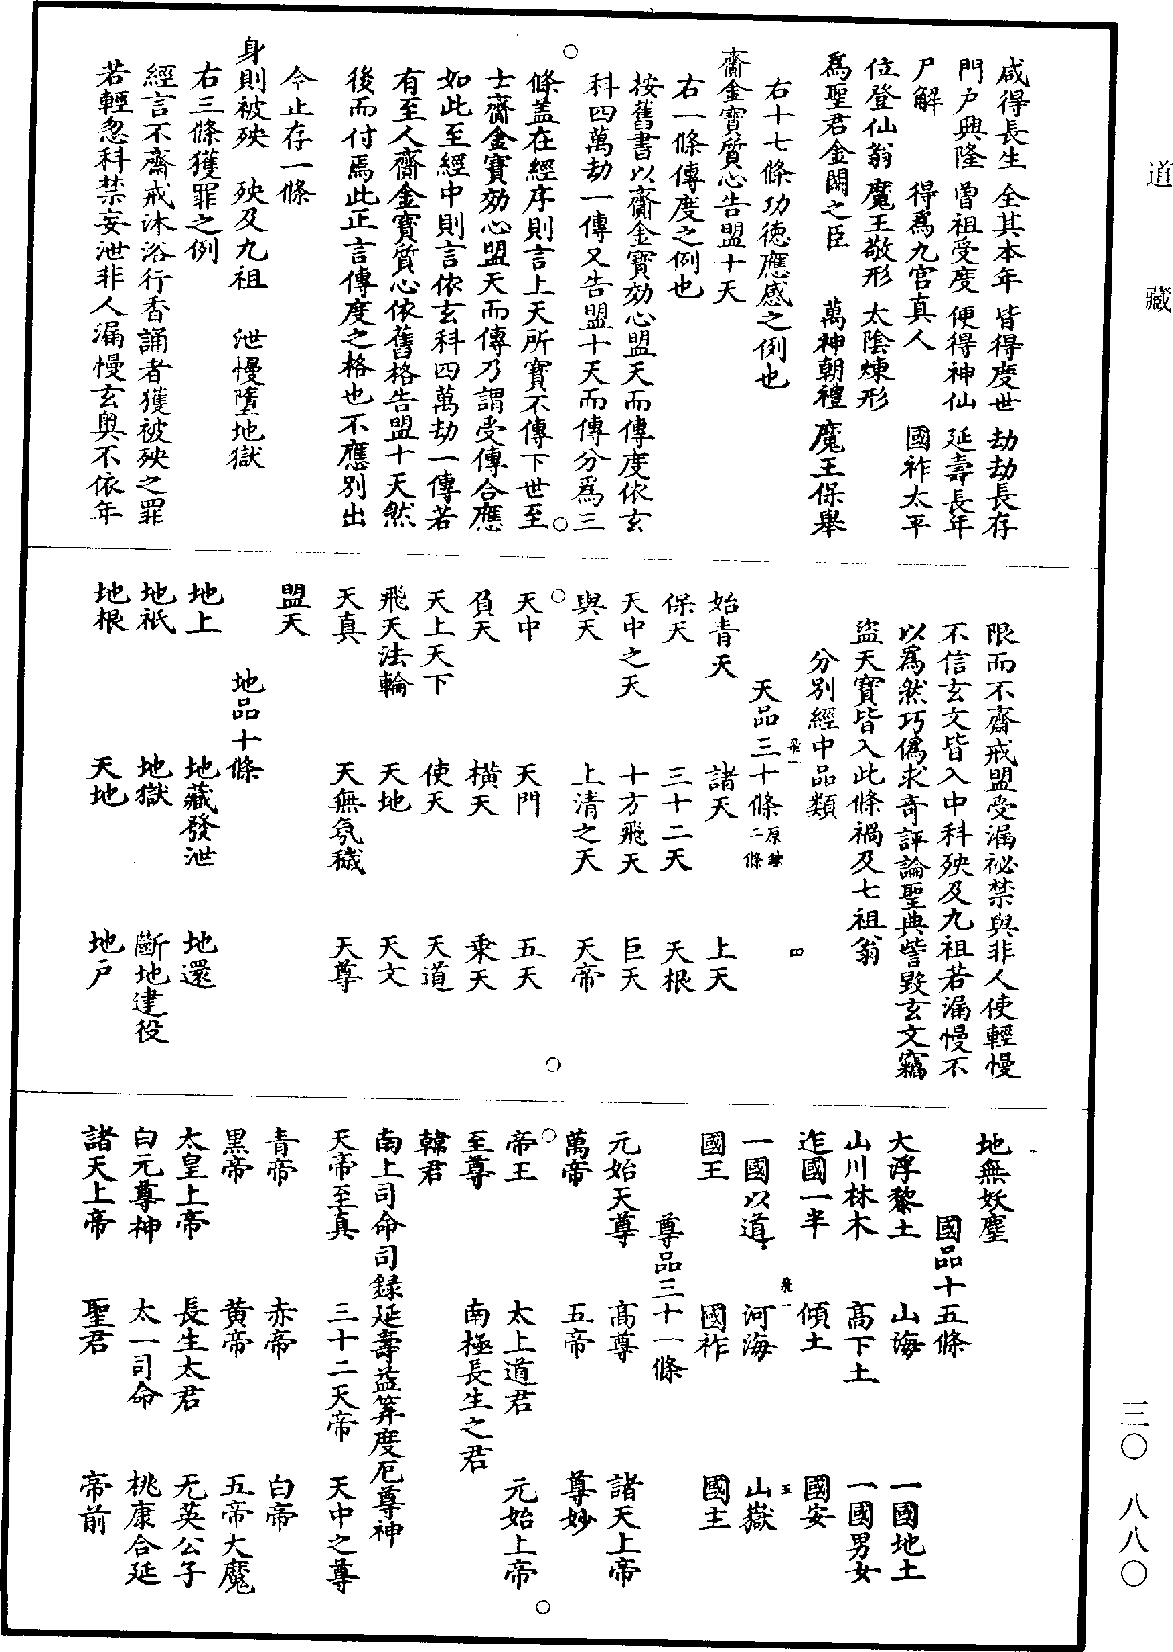 道藏
咸得長生　全其本年　皆得度世　劫劫長存
門戶興隆　曾祖受度　便得神仙　延壽長年
尸解　得為九宮真人　國祚太平
位登仙翁　魔王敬形　太陰煉形
為聖君金闕之臣　萬神朝禮　魔王保舉
右十七條功德應感之例也
齎金寶質心告盟十天
右一條傳度之例也
按舊書以齎金寶効心盟天而傳度依玄
科四萬劫一傳又告盟十天而傳分為三
條蓋在經序則言上天所寶不傳下世至
士齎金寶効心盟天而傳乃謂受傳合應
如此至經中則言依玄科四萬劫一傳若
有至人齎金寶質心依舊格告盟十天然
後而付焉此正言傳度之格也不應別出
今止存一條
身則被殃　殃及九祖　泄慢墮地獄
右三條獲罪之例
經言不齋戒沐浴行香誦者獲被殃之罪
若輕忽科禁妄泄非人漏慢玄奧不依年
限而不齋戒盟受漏祕禁與非人使輕慢
不信玄文皆入中科殃及九祖若漏慢不
以為然巧偽求奇評論聖典訾毀玄文竊
盜天寶皆入此條禍及七祖翁
分別經中品類　四
天品三十條原缺二條
始青天　諸天　上天
保天　三十二天　天根
天中之天　十方飛天　巨天
與天　上清之天　天帝
天中　天門　五天
負天　橫天　乘天
天上天下　使天　天道
飛天法輪　天地　天文
天真　天無氛穢　天尊
盟天
地品十條
地上　地藏發泄　地還
地祇　地獄　斷地建役
地根　天地　地戶
地無妖塵
國品十五條
大浮黎土　山海　一國地土
山川林木　高下土　一國男女
迮國一半　傾土　國安
一國以道　河海　山嶽　五
國王　國祚　國主
尊品三十一條
元始天尊　高尊　諸天上帝
萬帝　五帝　尊妙
帝王　太上道君　元始上帝
至尊　南極長生之君
韓君
南上司命司錄延壽益算度厄尊神
天帝至真　三十二天帝　天中之尊
青帝　赤帝　白帝
黑帝　黃帝　五帝大魔
太皇上帝　長生太君　无英公子
白元尊神　太一司命　桃康合延
諸天上帝　聖君　帝前
三〇　八八〇